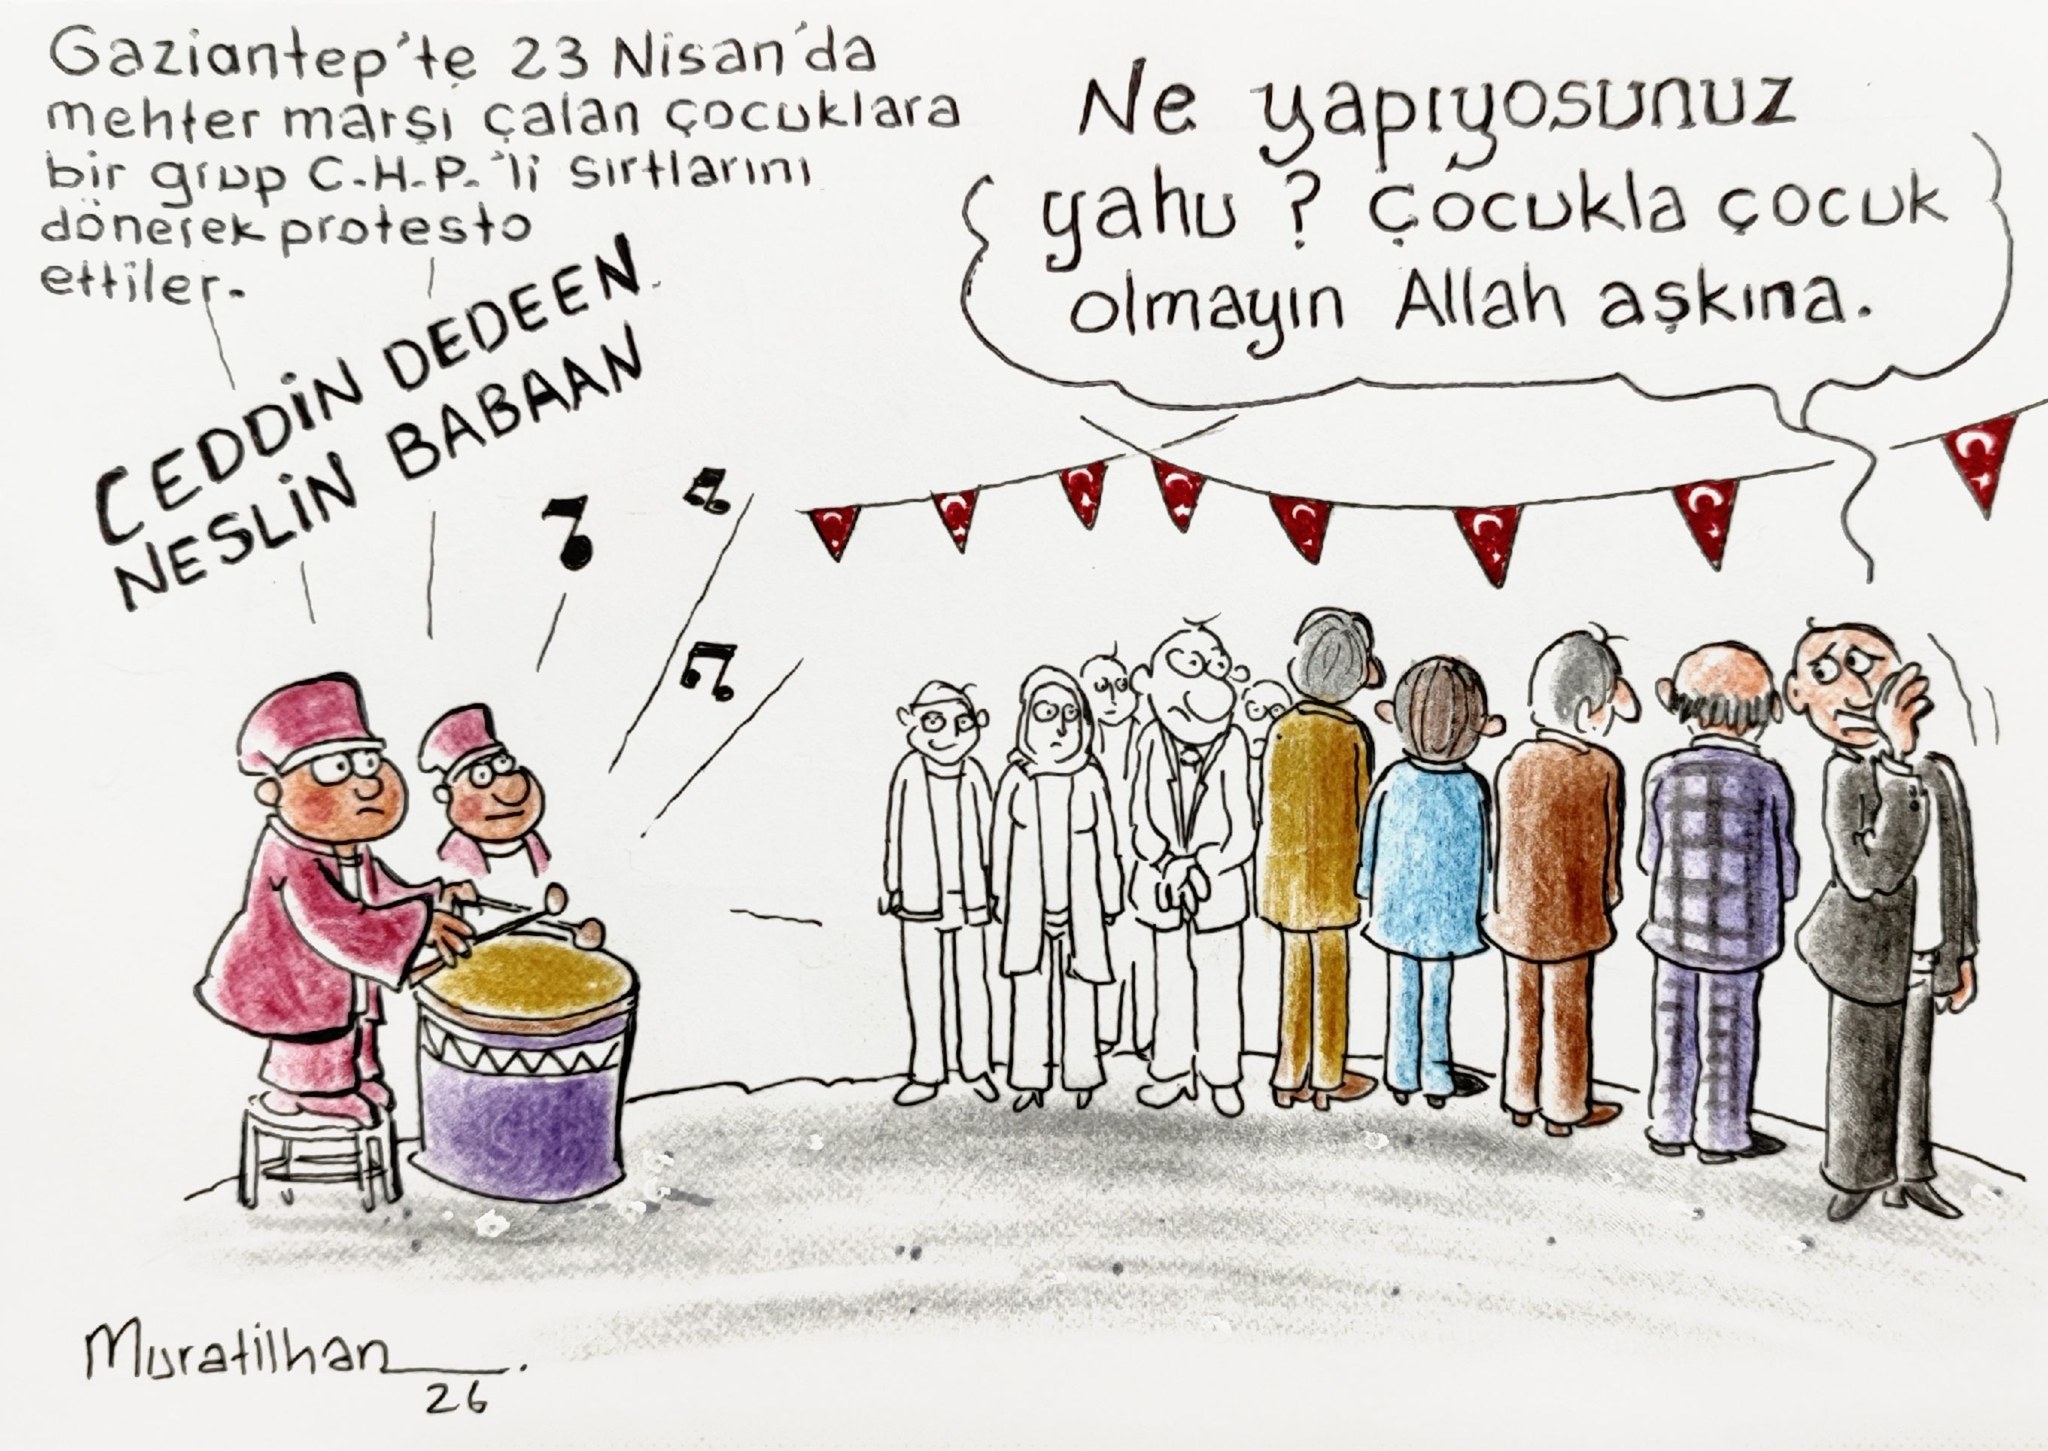 Gaziantep'te 23 Nisan'da
mehter marşı çalan çocuklara
bir grup C.H.P.'li sırtlarını
dönerek protesto
ettiler.
CEDDİN DEDEEN
NESLİN BABAAN
Ne yapıyosunuz
yahu? Çocukla çocuk
olmayın Allah aşkına.
Muratilhan
26